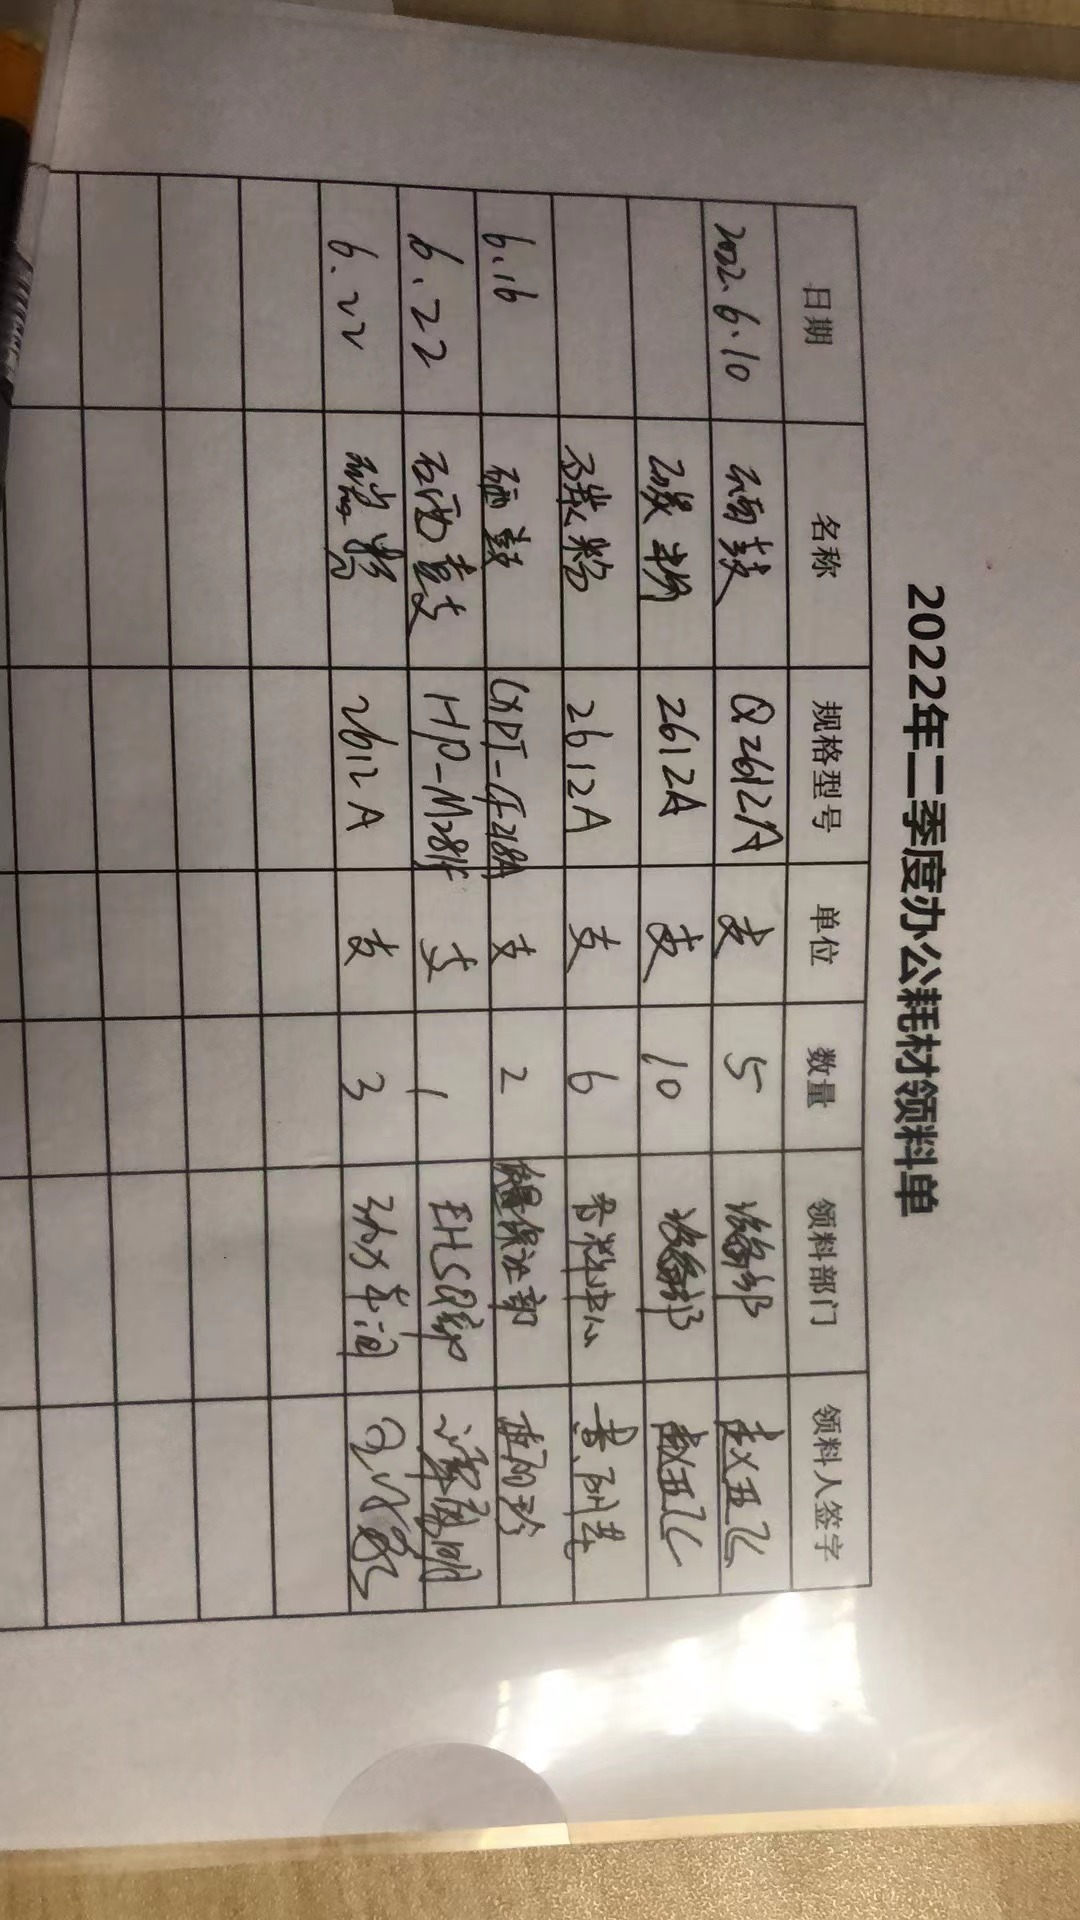 2022年二季度办公耗材领料单
日期 名称 规格型号 单位 数量 领料部门 领料人签字
2022.6.10 硒鼓 Q2612A 支 5 设备部 赵五飞
碳粉 2612A 支 10 设备部 赵五飞
碳粉 2612A 支 6 香料中心
6.16 硒鼓 CF218A 支 2 质量保证部
6.22 硒鼓 HP-M281F 支 1 EHSQ部
6.22 2612A 支 3 动力车间